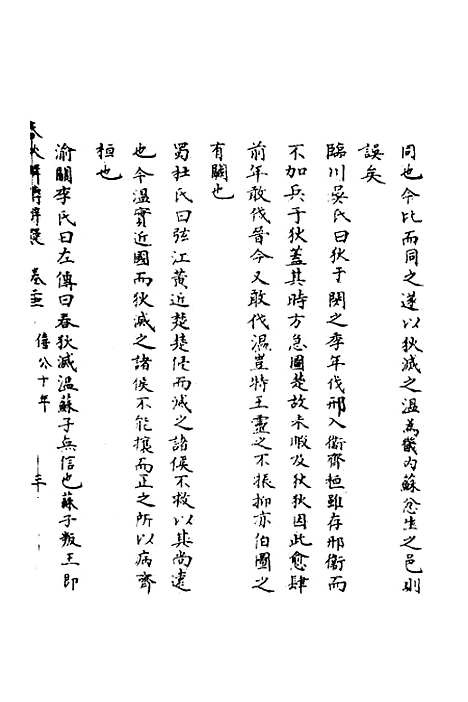 同也今比而同之遂以狄滅之溫為畿內蘇忿生之邑則
誤矣
臨川吳氏曰狄于閔之季年伐邢入衛齊桓雖存邢衛而
不加兵于狄蓋其時方急圖楚故未暇及狄狄因此愈肆
前年敢伐晉今又敢伐溫豈特王靈之不振抑亦伯圖之
有闕也
蜀杜氏曰弦江黃近楚楚侵而滅之諸侯不救以其尚遠
也今溫實近國而狄滅之諸侯不能攘而正之所以病齊
桓也
渝關李氏曰左傳曰春狄滅溫蘇子無信也蘇子叛王即
春秋辨義 卷三 僖公十年 三